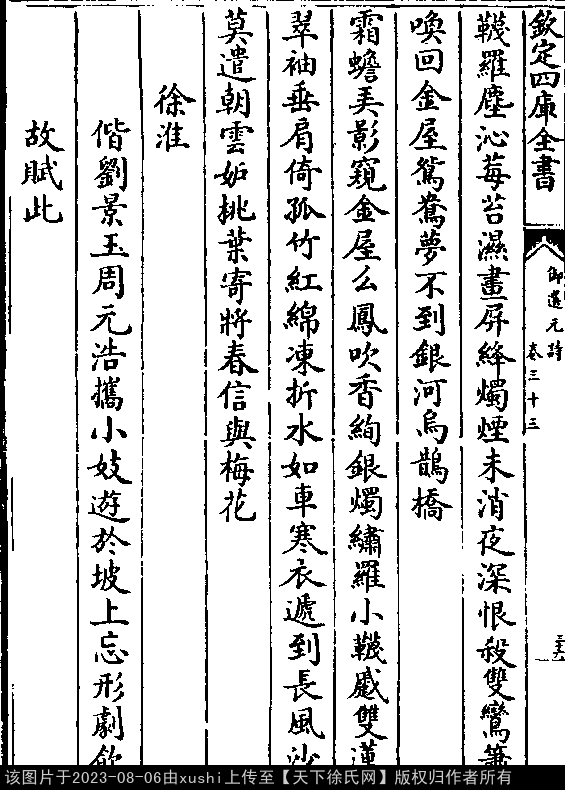 欽定四庫全書
御選元詩
卷三十三
韈羅塵沁莓苔濕畫屏絳燭煙未消夜深恨殺雙鸞簫
喚回金屋鴛鴦夢不到銀河烏鵲橋
霜蟾弄影窺金屋么鳳吹香絢銀燭繡羅小韈蹙雙蓮
翠袖垂肩倚孤竹紅綿凍折水如車寒衣遞到長風沙
莫遣朝雲妬挑葉寄將春信與梅花
徐淮
偕劉景玉周元浩攜小妓遊於坡上忘形劇飲
故賦此
该图片于2023-08-06由xushi上传至【天下徐氏网】版权归作者所有